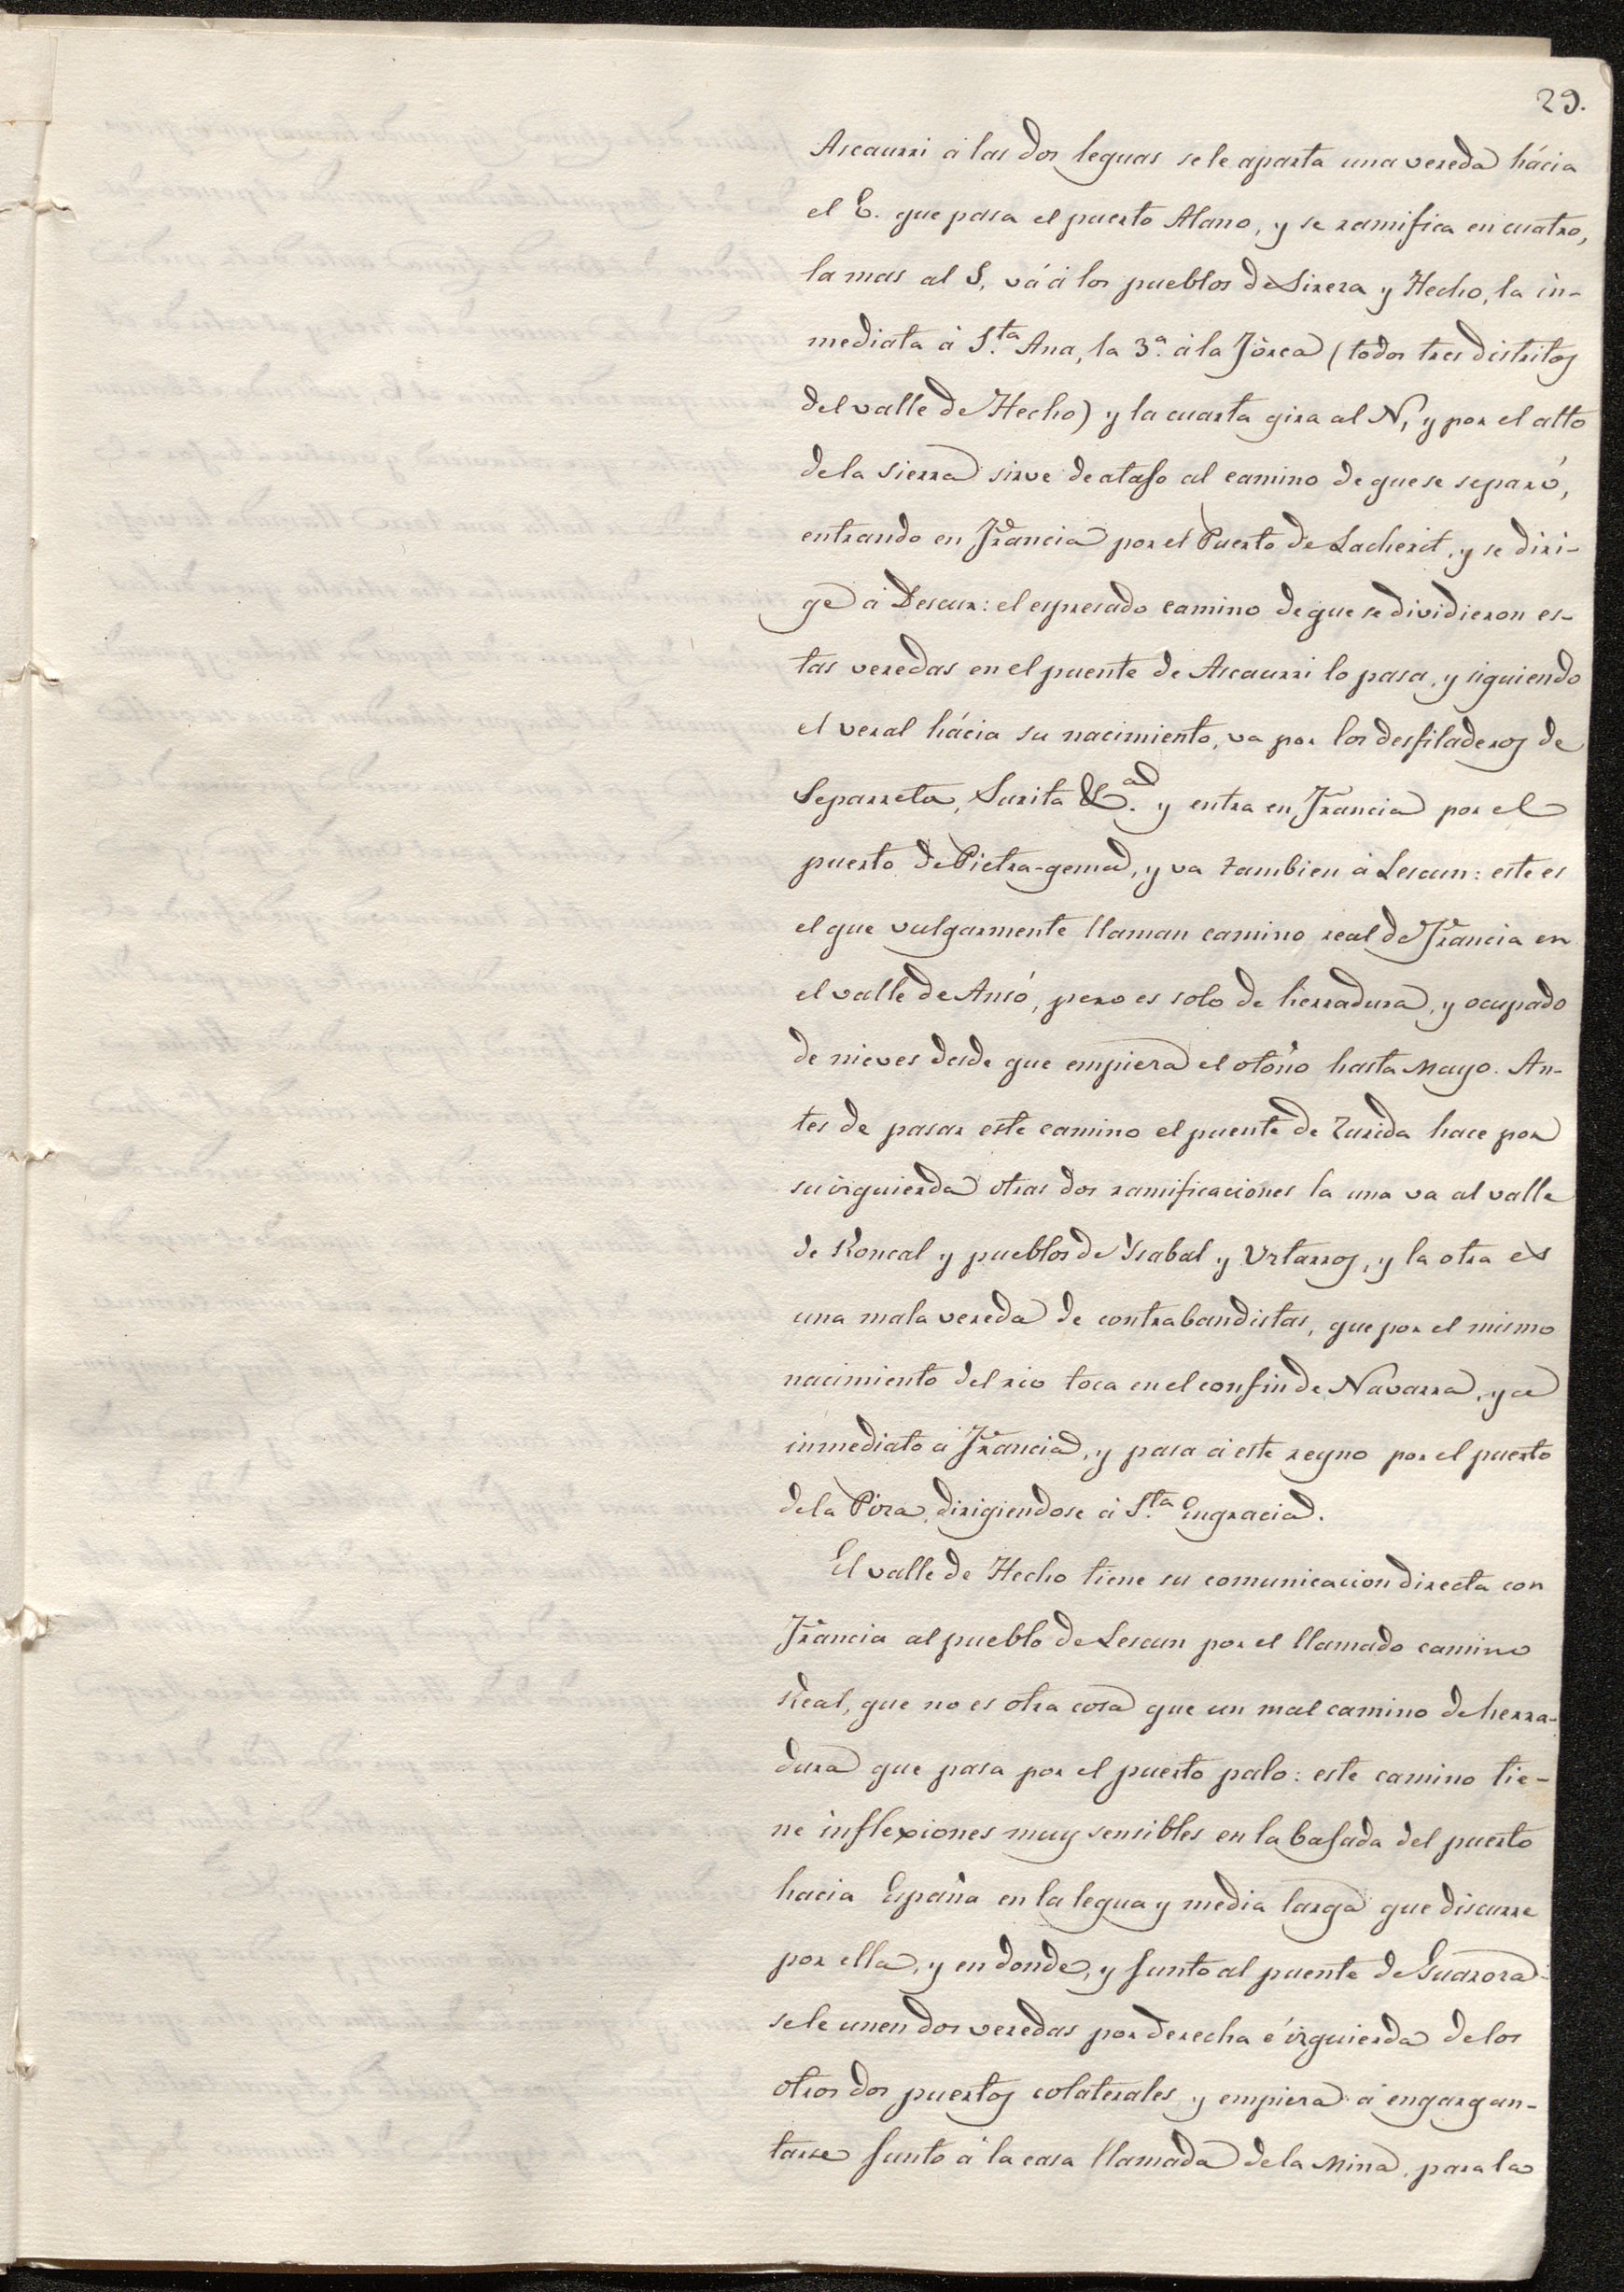 29.
Ascaurri á las dos leguas se le aparta una vereda hácia
el E. que pasa el puerto Alano, y se ramifica en cuatro,
la mas al S, vá á los pueblos de Sirera y Hecho, la in-
mediata á S.ta Ana, la 3.a á la Jórea (todos tres distritos
del valle de Hecho) y la cuarta gira al N, y por el alto
de la sierra sirve de atajo al camino de que se separó,
entrando en Francia por el Puerto de Lacherit, y se diri-
ge á Descur: el espresado camino de que se dividieron es-
tas veredas en el puente de Ascaurri lo pasa, y siguiendo
el veral hácia su nacimiento, va por los desfiladeros de
Separreta, Surita &.a y entra en Francia por el
puerto de Pietra-gema, y va tambien á Lescun: este es
el que vulgarmente llaman camino real de Francia en
el valle de Ansó, pero es solo de herradura, y ocupado
de nieves desde que empieza el otoño hasta Mayo. An-
tes de pasar este camino el puente de Zurida hace por
su izquierda otras dos ramificaciones la una va al valle
de Roncal y pueblos de Ysabal y Urtarroz, y la otra es
una mala vereda de contrabandistas, que por el mismo
nacimiento del rio toca en el confin de Navarra, y a
inmediato á Francia, y pasa á este reyno por el puerto
de la Piza, dirigiendose á S.ta Engracia.
El valle de Hecho tiene su comunicacion directa con
Francia al pueblo de Lescun por el llamado camino
Real, que no es otra cosa que un mal camino de herra-
dura que pasa por el puerto palo: este camino tie-
ne inflexiones muy sensibles en la bajada del puerto
hacia España en la legua y media larga que discurre
por ella, y en donde, y junto al puente de Guarora
se le unen dos veredas por derecha é izquierda de los
otros dos puertos colaterales y empieza á engargan-
tarse junto á la casa llamada de la Mina, para la